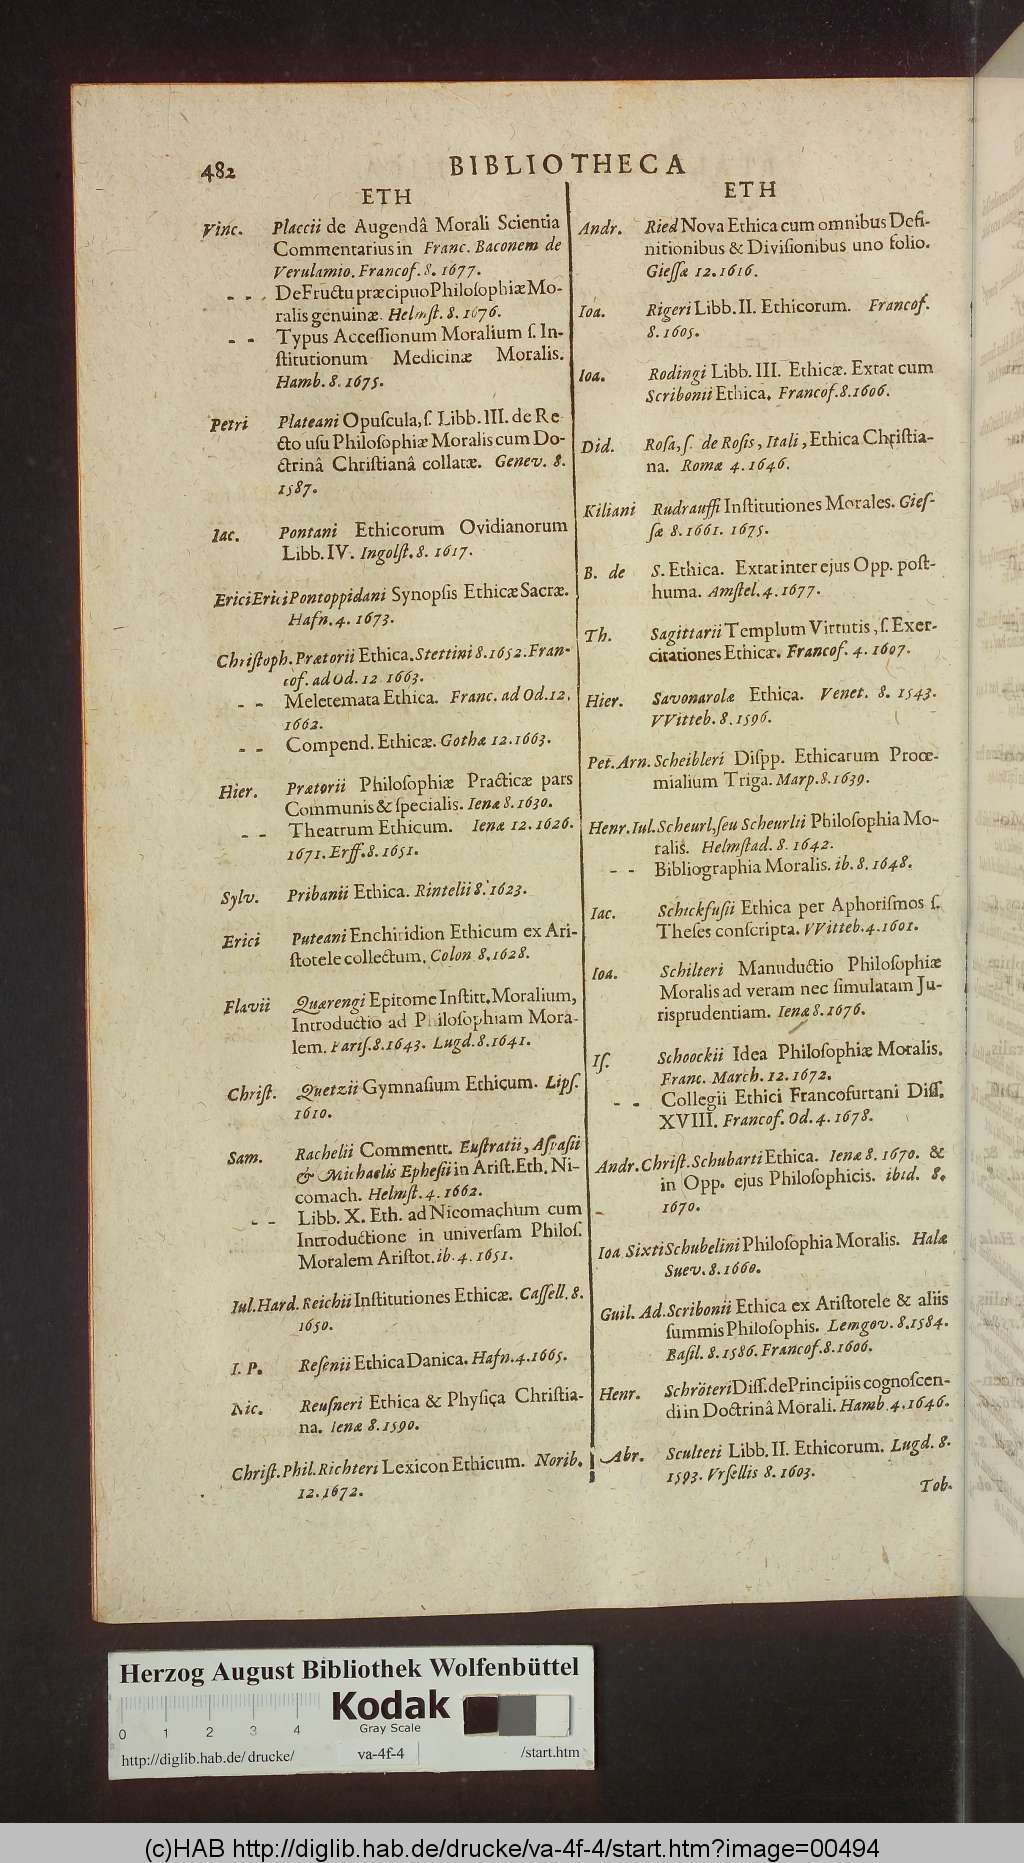 482
BIBLIOTHECA
ETH
Vinc. Placcii de Augendâ Morali Scientia
Commentarius in Franc. Baconem de
Verulamio. Francof. 8. 1677.
- - De Fructu præcipuo Philoſophiæ Mo-
ralis genuinæ. Helmſt. 8. 1676.
- - Typus Acceſſionum Moralium ſ. In-
ſtitutionum Medicinæ Moralis.
Hamb. 8. 1675.
Petri Plateani Opuſcula, ſ. Libb. III. de Re
cto uſu Philoſophiæ Moralis cum Do-
ctrinâ Chriſtianâ collatæ. Genev. 8.
1587.
Iac. Pontani Ethicorum Ovidianorum
Libb. IV. Ingolſt. 8. 1617.
Erici Erici Pontoppidani Synopſis Ethicæ Sacræ.
Hafn. 4. 1673.
Chriſtoph. Prætorii Ethica. Stettini 8. 1652. Fran-
cof. ad Od. 12 1663.
- - Meletemata Ethica. Franc. ad Od. 12.
1662.
- - Compend. Ethicæ. Gothæ 12. 1663.
Hier. Prætorii Philoſophiæ Practicæ pars
Communis & ſpecialis. Ienæ 8. 1630.
- - Theatrum Ethicum. Ienæ 12. 1626.
1671. Erff. 8. 1651.
Sylv. Pribanii Ethica. Rintelii 8. 1623.
Erici Puteani Enchiridion Ethicum ex Ari-
ſtotele collectum. Colon 8. 1628.
Flavii Quærengi Epitome Inſtitt. Moralium,
Introductio ad Philoſophiam Mora-
lem. Pariſ. 8. 1643. Lugd. 8. 1641.
Chriſt. Quetzii Gymnaſium Ethicum. Lipſ.
1610.
Sam. Rachelii Commentt. Euſtratii, Aſpaſii
& Michaelis Epheſii in Ariſt. Eth. Ni-
comach. Helmſt. 4. 1662.
- - Libb. X. Eth. ad Nicomachum cum
Introductione in universam Philoſ.
Moralem Ariſtot. ib. 4. 1651.
Iul. Hard. Reichii Inſtitutiones Ethicæ. Caſſell. 8.
1650.
I. P. Reſenii Ethica Danica. Hafn. 4. 1665.
Nic. Reuſneri Ethica & Phyſica Chriſtia-
na. Ienæ 8. 1590.
Chriſt. Phil. Richteri Lexicon Ethicum. Norib.
12. 1672.
ETH
Andr. Ried Nova Ethica cum omnibus Defi-
nitionibus & Diviſionibus uno folio.
Gieſſæ 12. 1616.
Ioa. Rigeri Libb. II. Ethicorum. Francof.
8. 1605.
Ioa. Rodingi Libb. III. Ethicæ. Extat cum
Scribonii Ethica. Francof. 8. 1606.
Did. Roſa, ſ. de Roſis, Itali, Ethica Chriſtia-
na. Romæ 4. 1646.
Kiliani Rudrauffi Inſtitutiones Morales. Gieſ-
ſæ 8. 1661. 1675.
B. de S. Ethica. Extat inter ejus Opp. poſt-
huma. Amſtel. 4. 1677.
Th. Sagittarii Templum Virtutis, ſ. Exer-
citationes Ethicæ. Francof. 4. 1607.
Hier. Savonarolæ Ethica. Venet. 8. 1543.
VVitteb. 8. 1596.
Pet. Arn. Scheibleri Diſpp. Ethicarum Prooe-
mialium Triga. Marp. 8. 1639.
Henr. Iul. Scheurl, ſeu Scheurlii Philoſophia Mo-
ralis. Helmſtad. 8. 1642.
- - Bibliographia Moralis. ib. 8. 1648.
Iac. Schickfuſii Ethica per Aphoriſmos ſ.
Theſes conſcripta. VVitteb. 4. 1601.
Ioa. Schilteri Manuductio Philoſophiæ
Moralis ad veram nec ſimulatam Ju-
risprudentiam. Ienæ 8. 1676.
Iſ. Schoockii Idea Philoſophiæ Moralis.
Franc. March. 12. 1672.
- - Collegii Ethici Francofurtani Diſſ.
XVIII. Francof. Od. 4. 1678.
Andr. Chriſt. Schubarti Ethica. Ienæ 8. 1670. &
in Opp. ejus Philoſophicis. ibid. 8.
1670.
Ioa Sixti Schubelini Philoſophia Moralis. Halæ
Suev. 8. 1660.
Guil. Ad. Scribonii Ethica ex Ariſtotele & aliis
ſummis Philoſophis. Lemgov. 8. 1584.
Baſil. 8. 1586. Francof. 8. 1606.
Henr. Schröteri Diſſ. de Principiis cognoſcen-
di in Doctrinâ Morali. Hamb. 4. 1646.
Abr. Sculteti Libb. II. Ethicorum. Lugd. 8.
1593. Vrſellis 8. 1603.
Tob.
Herzog August Bibliothek Wolfenbüttel
Kodak
Gray Scale
0 1 2 3 4
http://diglib.hab.de/drucke/ va-4f-4 /start.htm
(c)HAB http://diglib.hab.de/drucke/va-4f-4/start.htm?image=00494